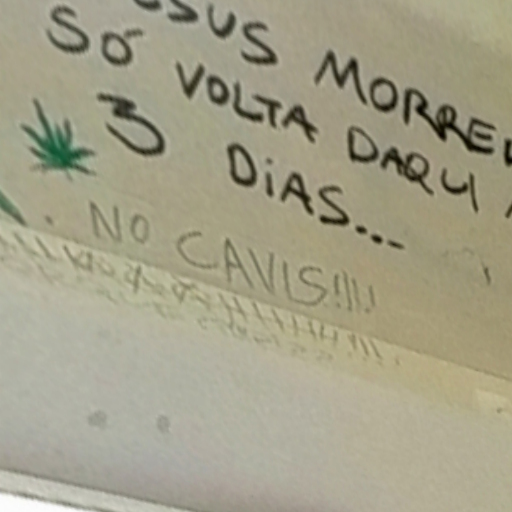 SUS MORREU
SÓ VOLTA DAQUI A
3 DIAS...
NO CAVIS!!!!